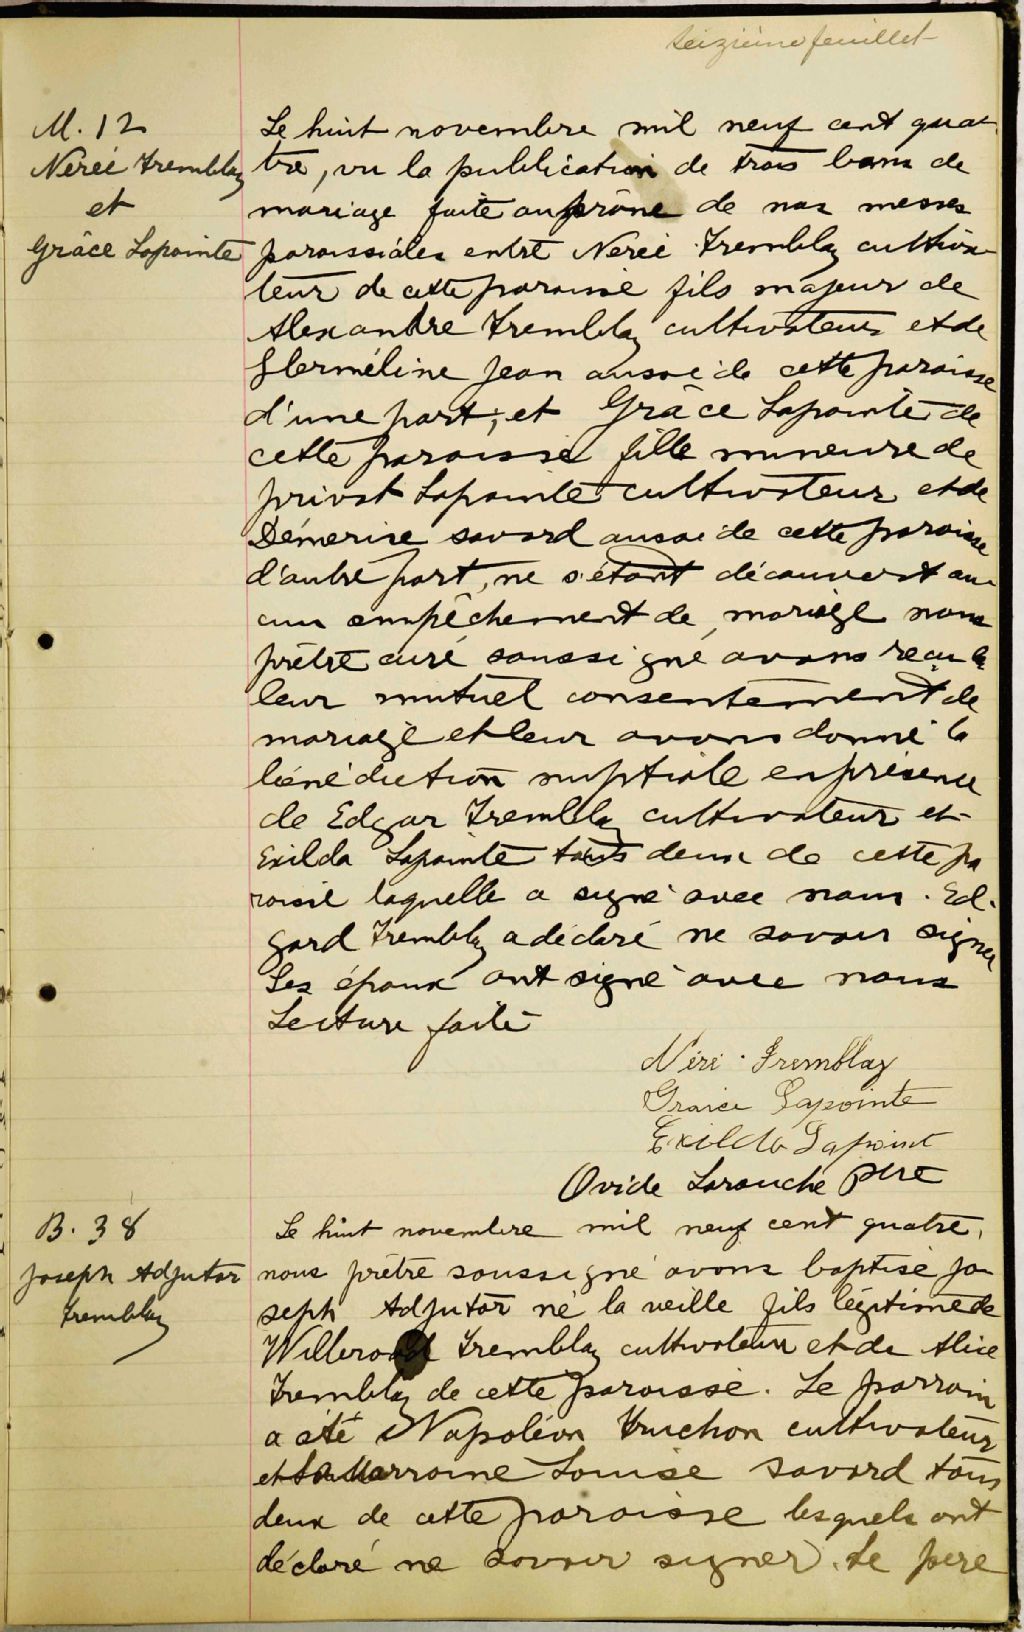 Seizième feuillet
M. 12
Nereé Tremblay
et
Grâce Lapointe
Le huit novembre mil neuf cent qua-
tre, vu la publication de trois bans de
mariage faite au prône de nos messes
paroissiales entre Nereé Tremblay cultiva-
teur de cette paroisse fils majeur de
Alexandre Tremblay cultivateur et de
Herméline Jean aussi de cette paroisse
d'une part, et Grâce Lapointe de
cette paroisse fille mineure de
privat Lapointe cultivateur et de
Démerise savard aussi de cette paroisse
d'autre part, ne s'étant découvert au-
cun empêchement de mariage nous
prêtre curé soussigné avons reçu
leur mutuel consentement de
mariage et leur avons donné la
bénédiction nuptiale en présence
de Edgar Tremblay cultivateur et
Exilda Lapointe tous deux de cette pa
roisse laquelle a signé avec nous. Ed-
gard Tremblay a déclaré ne savoir signer
Les époux ont signé avec nous
Lecture faite
Néré Tremblay
Graice Lapointe
Exilda Lapoint
Ovide Larouche ptre
B. 38
Joseph Adjutor
Tremblay
Le huit novembre mil neuf cent quatre,
nous prêtre soussigné avons baptisé Jo
seph Adjutor né la veille fils légitime de
Willbrod Tremblay cultivateur et de Alice
Tremblay de cette paroisse. Le parrain
a été Napoléon Truchon cultivateur
et la Marraine Louise Savard tous
deux de cette paroisse lesquels ont
déclaré ne savoir signer. Le pere